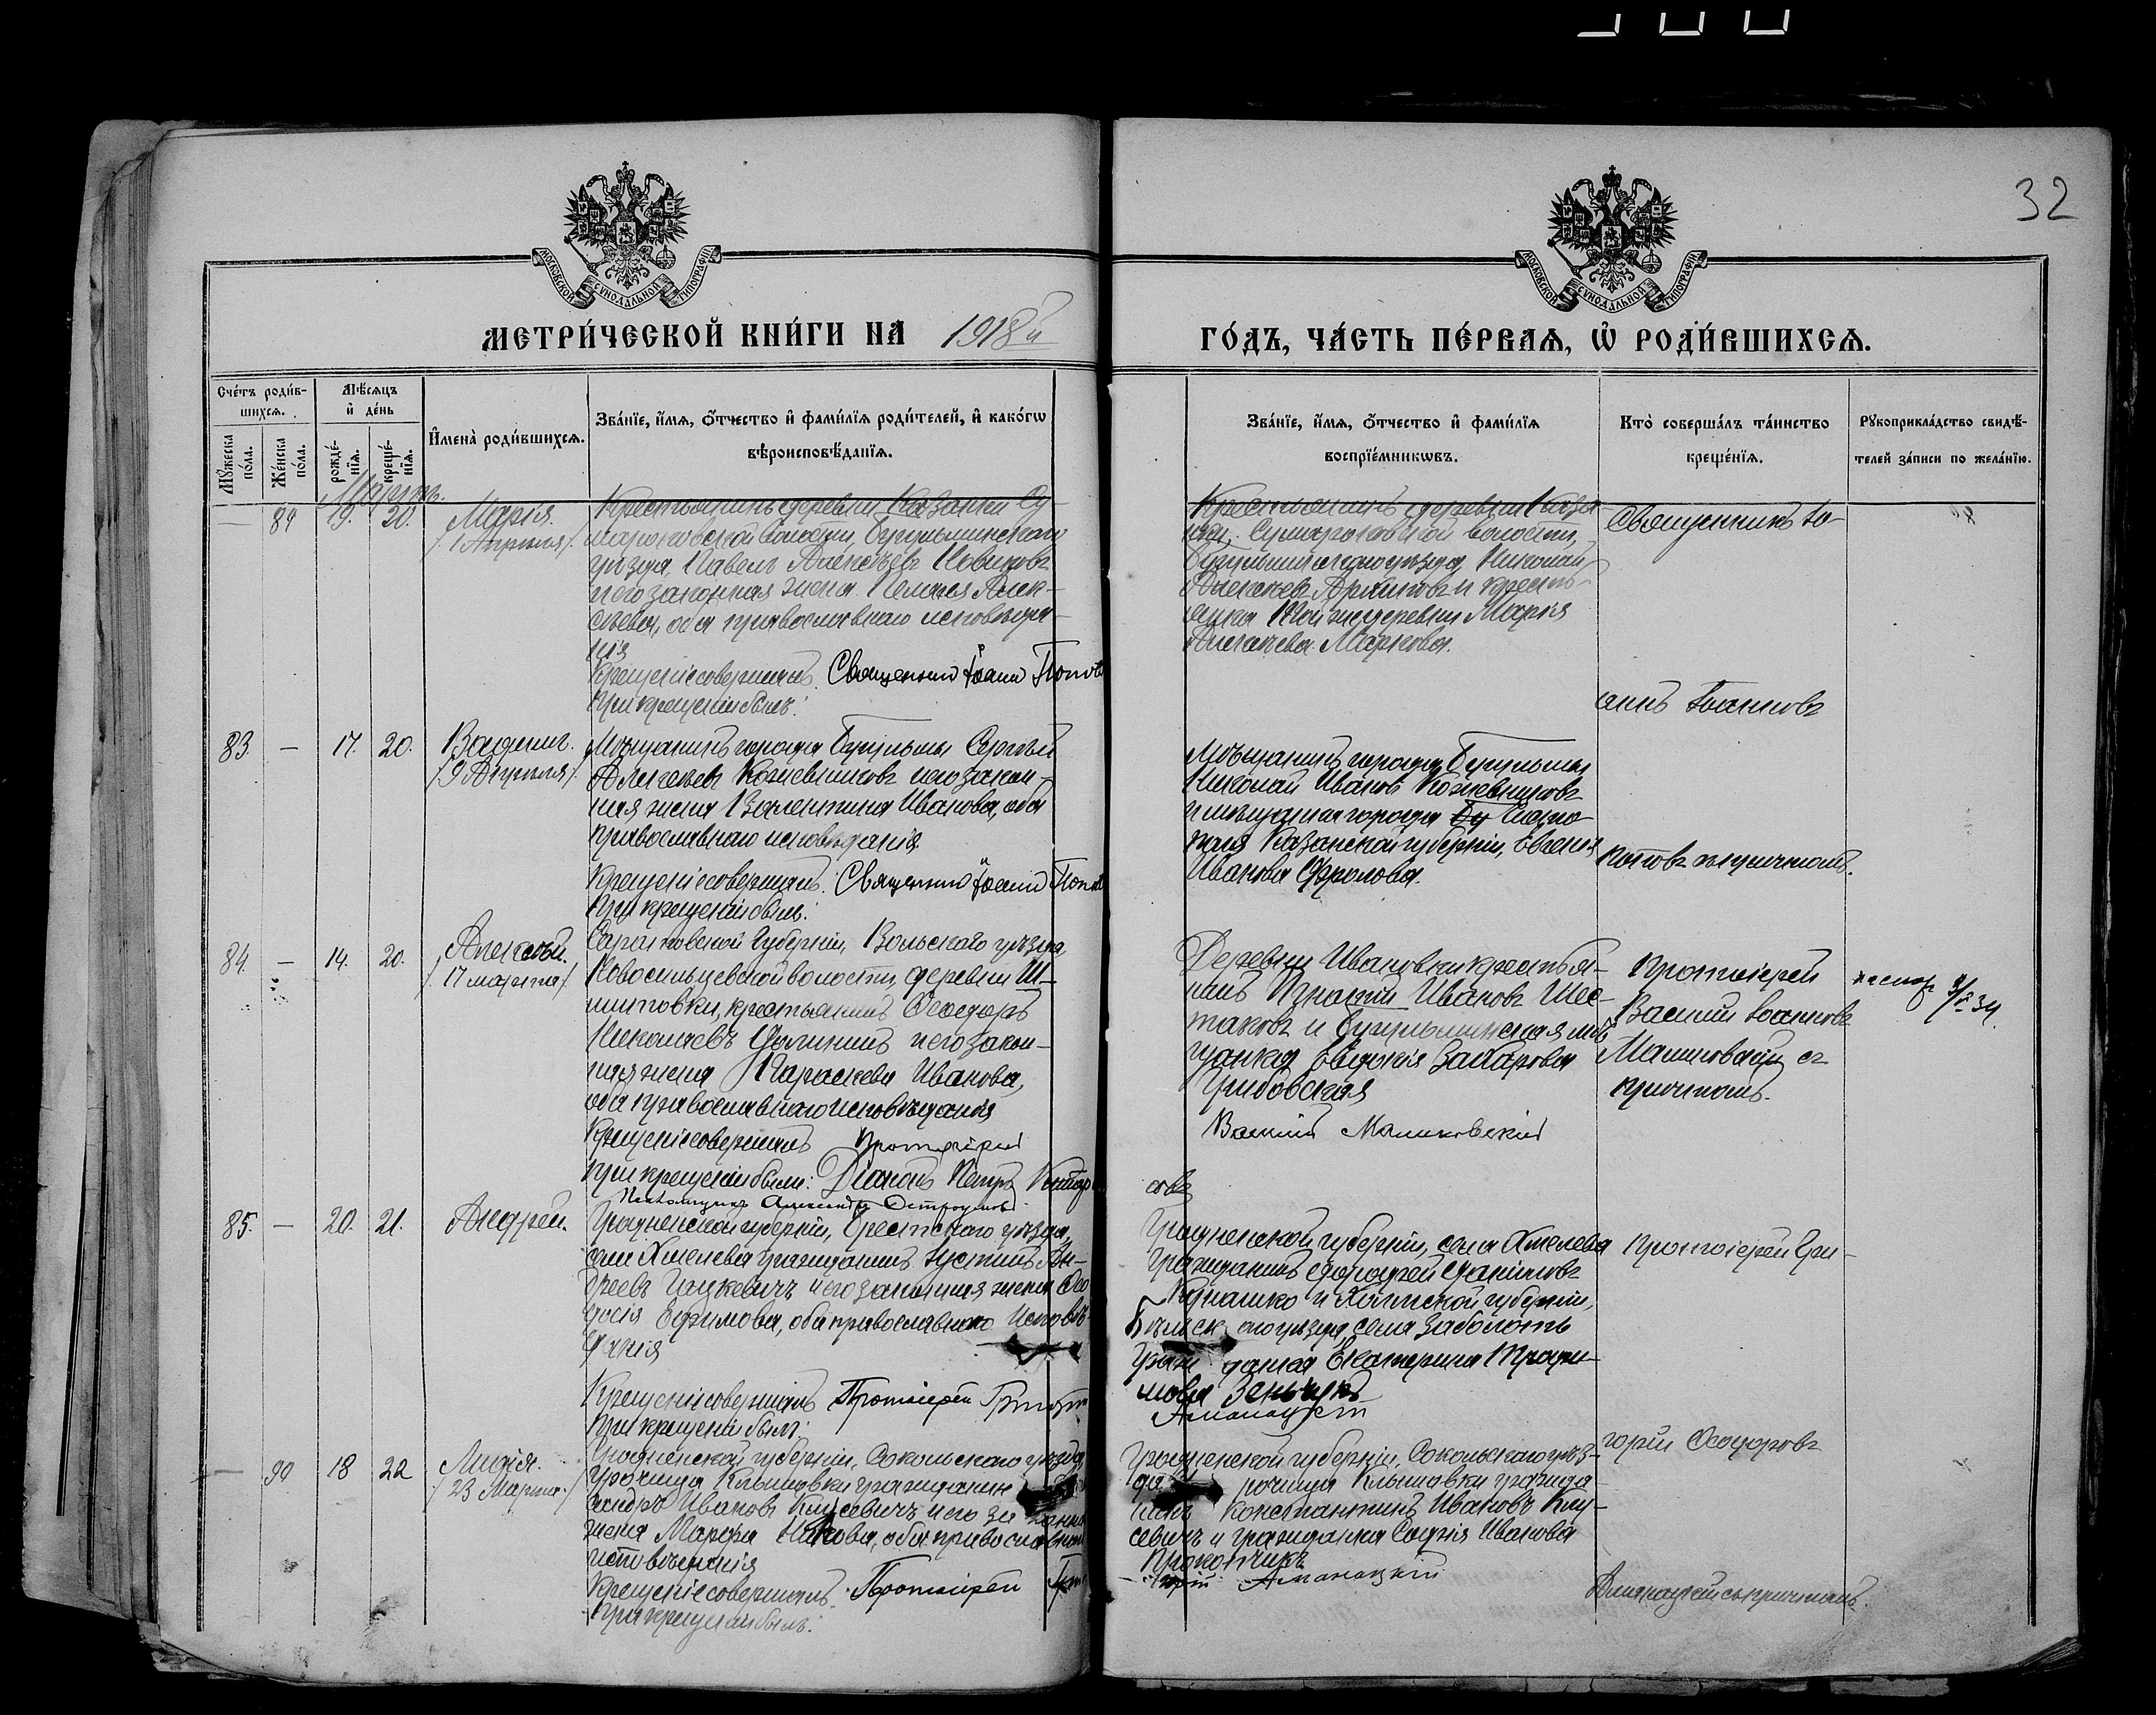 32
МОСКОВСКОЙ СѴНОДАЛЬНОЙ ТИПОГРАФІИ
МОСКОВСКОЙ СѴНОДАЛЬНОЙ ТИПОГРАФІИ
МЕТРИ́ЧЕСКОЙ КНИ́ГИ НА 1918й
ГО́ДЪ, ЧА́СТЬ ПЕ́РВАЯ, Ѽ РОДИ́ВШИХСЯ.
Сче́тъ роди́в-
шихся.
Мѣ́сяцъ
и҆ де́нь
Мꙋ́жеска по́ла.
Же́нска по́ла.
рожде́-
нїя.
креще́-
нїя.
И҆мена̀ роди́вшихся.
Зва́нїе, и҆́мя, ѻ҆́тчество и҆ фами́лїя роди́телей, и҆ како́гѡ
вѣроисповѣ́данїя.
Зва́нїе, и҆́мя, ѻ҆́тчество и҆ фами́лїя
воспрїе́мникѡвъ.
Кто̀ соверша́лъ та́инство
креще́нїя.
Рꙋкоприкла́дство свидѣ́-
телей за́писи по жела́нїю.
Мартъ.
— 89 19. 20. Марія.
/1 Апрѣля/.
Крестьянинъ деревни Казанки Су
мароковской волости, Бугульминскаго
уѣзда, Павелъ Алексѣевъ Новиковъ
и его законная жена Пелагія Алек-
сѣева, оба православнаго исповѣда-
нія
Крещеніе совершалъ: Священникъ Іоаннъ Попов
При крещеніи былъ:
Крестьянинъ деревни Каза
нки, Сумароковской волости,
Бугульминскаго уѣзда, Николай
Алексѣевъ Архиповъ и кресть-
янка той же деревни Марія
Алексѣева Маркова.
Священникъ Іо-
аннъ Іоанновъ
83. — 17. 20. Вадимъ.
/9 Апрѣля/.
Мѣщанинъ города Бугульмы Сергѣй
Алексѣевъ Кожевниковъ и его закон-
ная жена Валентина Иванова, оба
православнаго исповѣданія.
Крещеніе совершалъ: Священникъ Іоаннъ Попов
При крещеніи былъ:
Мѣщанинъ города Бугульмы
Николай Ивановъ Кожевниковъ
и мѣщанка города
Казанской губерніи, Евгенія
Иванова Фролова.
съ причтомъ.
84. — 14. 20. Алексѣй.
/17 марта/.
Саратовской губерніи, Вольскаго уѣзда,
Новосильцевской волости, деревни
крестьянинъ Ѳеодоръ
Николаевъ и его закон-
ная жена Параскева Иванова,
оба православнаго исповѣданія
Крещеніе совершалъ Протоіерей
При крещеніи были: Діаконъ Петръ
Псаломщикъ Александръ Остроумовъ
Деревни Ивановки крестья-
нинъ Игнатій Ивановъ Шес-
таковъ и Бугульминская мѣ
щанка Евдокія Захарова
Грибовская
Василій Малиновскій
Протоіерей
Василій Іоанновъ
Малиновскій съ
причтомъ.
85. — 20. 21. Андрей.
Гродненской губерніи, Брестскаго уѣзда,
села Хмелева гражданинъ Іустинъ Ан-
дреевъ Гацкевичъ и его законная жена Ѳео
досія Ефимова, оба православнаго исповѣ-
данія
Крещеніе совершалъ Протоіерей
При крещеніи былъ:
Гродненской губерніи, села Хмелева
гражданинъ
и Холмской губерніи,
Бѣльск аго уѣзда, села Заболоть
граж данка Екатерина Трофи-
мова Зеньчукъ
Протоіерей Гри-
горій Ѳеодоровъ
— 90 18 22 Лидія.
/23 Марта/
Гродненской губерніи, Сокольскаго уѣзда
урочища Клышовки гражданин
Ивановъ Клусевичъ и его за конная
жена Марфа оба православнаго
исповѣданія
Крещеніе совершалъ: Протоіерей
При крещеніи былъ:
Гродненской губерніи, Сокольскаго уѣз-
да рочища Клышовки гражда
нинъ Константинъ Ивановъ Клу-
севичъ и гражданка Софія Иванова
Прокопчикъ
съ причтомъ.